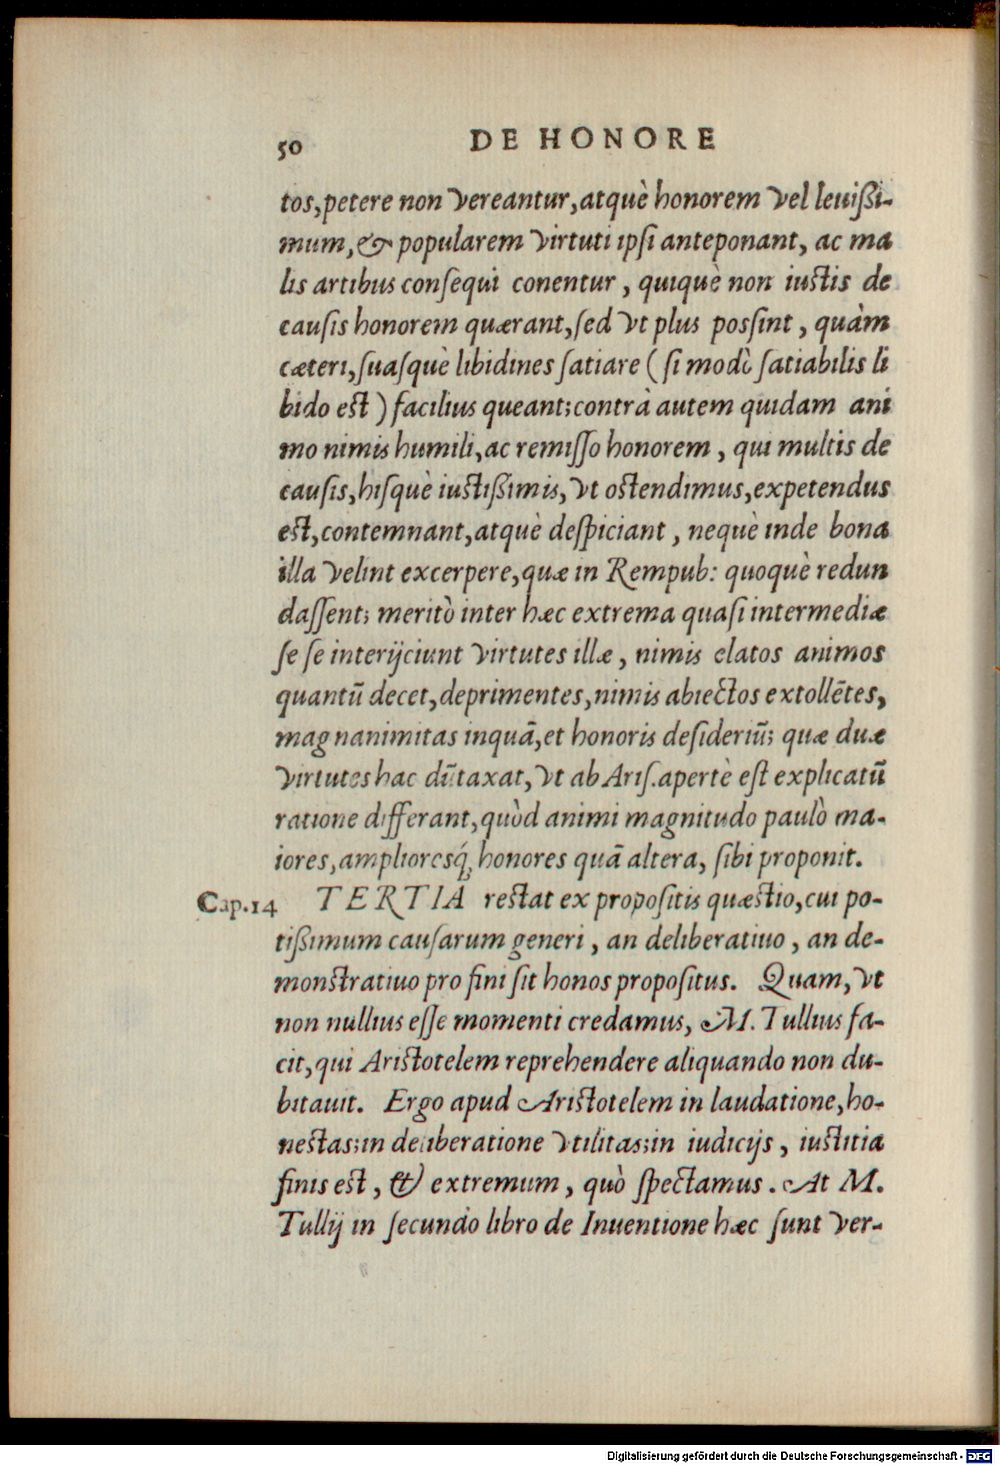 50 DE HONORE
tos, petere non vereantur, atquè honorem vel leuißi-
mum, & popularem virtuti ipſi anteponant, ac ma
lis artibus conſequi conentur, quiquè non iuſtis de
cauſis honorem quærant, ſed vt plus poſſint, quàm
cæteri, ſuaſquè libidines ſatiare (ſi modò ſatiabilis li
bido eſt) facilius queant; contrà autem quidam ani
mo nimis humili, ac remiſſo honorem, qui multis de
cauſis, hiſquè iuſtißimis, vt oſtendimus, expetendus
eſt, contemnant, atquè deſpiciant, nequè inde bona
illa velint excerpere, quæ in Rempub: quoquè redun
daſſent; meritò inter hæc extrema quaſi intermediæ
ſe ſe interijciunt virtutes illæ, nimis elatos animos
quantū decet, deprimentes, nimis abiectos extollētes,
magnanimitas inquā, et honoris deſideriū; quæ duæ
virtutes hac dūtaxat, vt ab Ariſ. apertè eſt explicatū
ratione differant, quòd animi magnitudo paulò ma-
iores, amplioresq́; honores quā altera, ſibi proponit.
Cap.14 TERTIA reſtat ex propoſitis quæſtio, cui po-
tißimum cauſarum generi, an deliberatiuo, an de-
monſtratiuo pro fini ſit honos propoſitus. Quam, vt
non nullius eſſe momenti credamus, M. Tullius fa-
cit, qui Ariſtotelem reprehendere aliquando non du-
bitauit. Ergo apud Ariſtotelem in laudatione, ho-
neſtas; in deliberatione vtilitas; in iudicijs, iuſtitia
finis eſt, & extremum, quò ſpectamus. At M.
Tullij in ſecundo libro de Inuentione hæc ſunt ver-
Digitalisierung gefördert durch die Deutsche Forschungsgemeinschaft - DFG